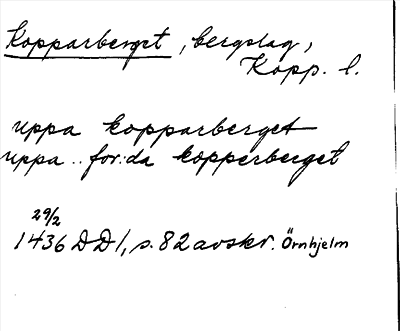 Kopparberget, bergslag,
Kopp. l.
uppa kopparberget
uppa .. for:da kopperberget
29/2
1436 DD1, s. 82 avskr. Örnhjelm